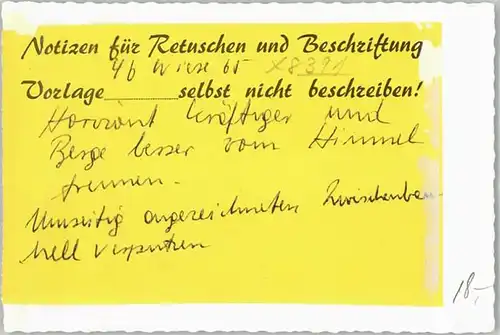 Notizen für Retuschen und Beschriftung
46 Wiese 65 X8391
Vorlage______selbst nicht beschreiben!
Horizont kräftiger und
Berge besser vom Himmel
trennen.
Umseitig angezeichneten Zwischenbau
hell verputzen
18,-